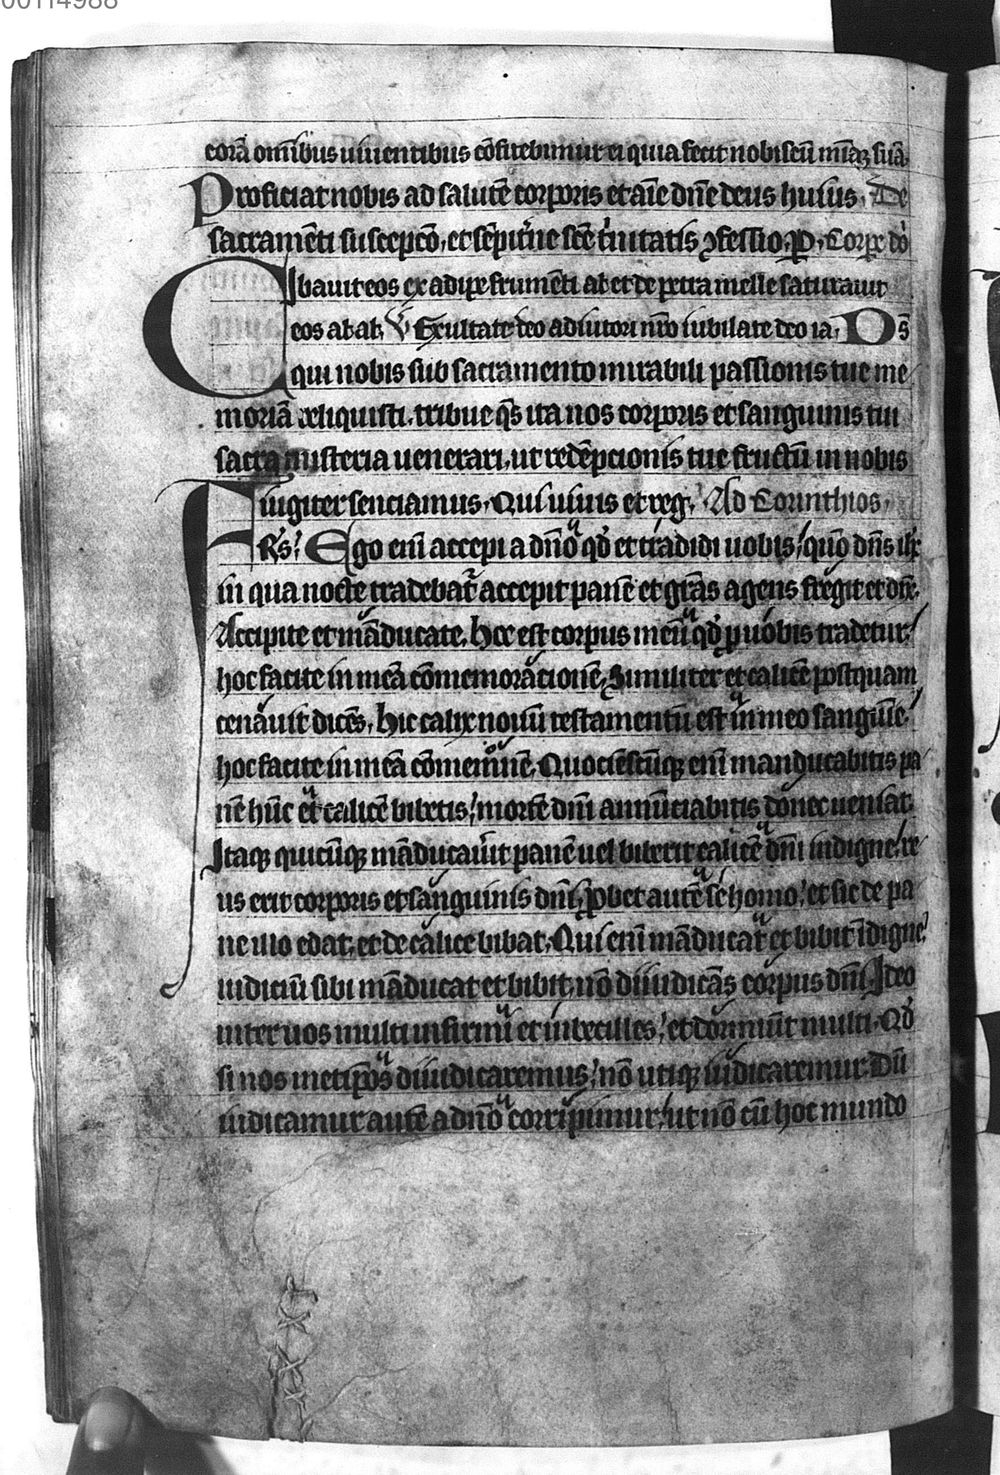 00114988
corā om̄ibus uiuentibus cōfitebimur ei quia fecit nobiscū mīaȝ suā.
Proficiat nobis ad salutē corporis et aīe dn̄e deus huius De
sacramēti suscepcō, et sēpit'ne scē t'nitatis ꝯfessio. P. Corpe
Cibauit eos ex adipe frumēti al' et de petra melle saturauit
eos al' al'. V Exultate deo adiutori nr̄o iubilate deo ia. Ds̄
qui nobis sub sacramento mirabili passionis tue me
moriā reliquisti. tribue q̄s ita nos corporis et sanguinis tui
sacra misteria uenerari. ut redēpcionis tue fructū in nobis
iugiter senciamus. Qui uiuis et reg. Ad Corinthios.
Frs̄. Ego enī accepi a dn̄o qd' et tradidi uobis. quō dn̄s ih̄c
in qua nocte tradebat' accepit panē et grās agens fregit et dix̄.
Accipite et māducate. hoc est corpus meū qd' ꝓ uobis tradetur.
hoc facite in meā cōmemoracionē. Similiter et calicē postquam
cenauit dicēs. hic calix nouū testamentū est in meo sanguīe.
hoc facite in meā cōmemoīnē. Quociēscūqꝫ enī manducabitis pa
nē hūc et calicē bibetis. mortē dn̄i annūciabitis donec ueniat.
Itaqꝫ quicūqꝫ māducau'it panē uel biberit calicē dn̄i indigne. re
us erit corporis et sanguinis dn̄i. Ꝓbet autē se homo. et sic de pa
ne illo edat. et de calice bibat. Qui enī māducat et bibit īdigne.
iudiciū sibi māducat et bibit. nō diiudicās corpus dn̄i. Ideo
inter uos multi infirmi et inbecilles. et dormiūt multi. Qd'
si nos metip̄os diiudicaremus. nō utiqꝫ iudicaremur. Dū
iudicamur autē a dn̄o corripimur. ut nō cū hoc mundo